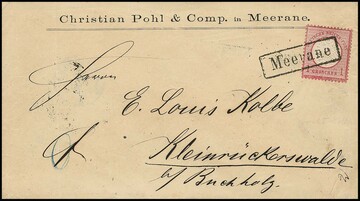 Christian Pohl & Comp. in Meerane.
Meerane
Herrn
E. Louis Kolbe
Kleinrückerswalde
b/ Buchholz.